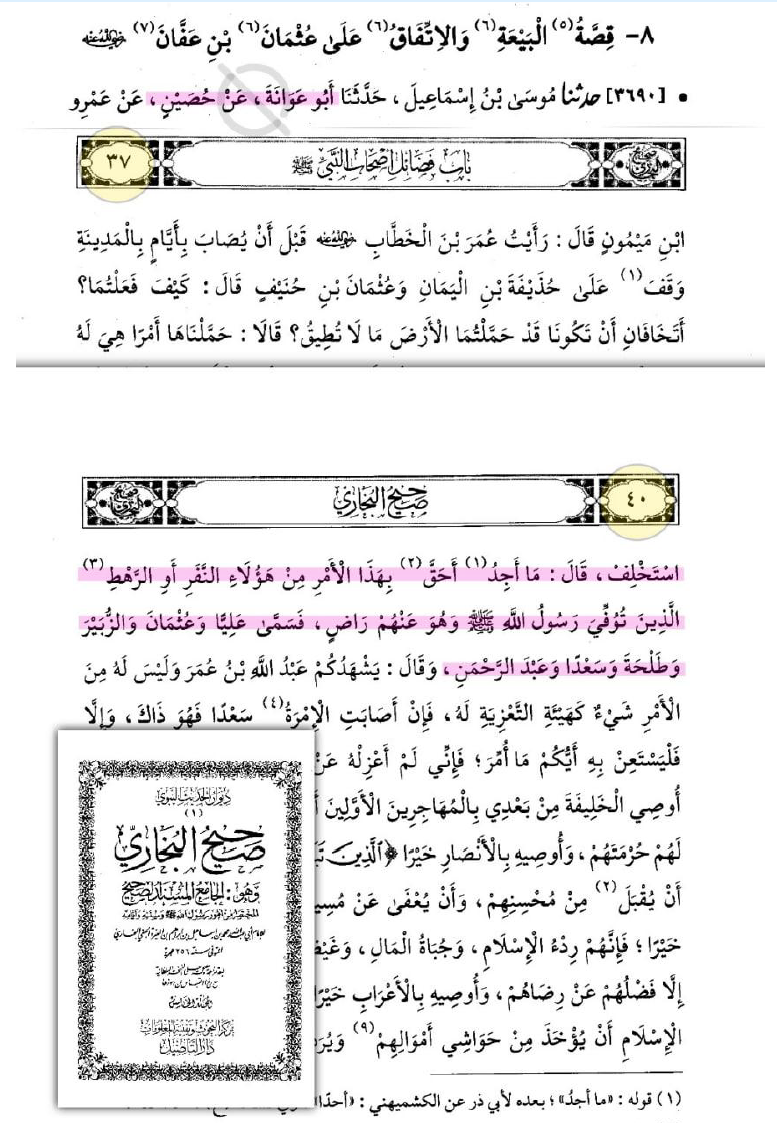 ٨- قِصَّةُ(٥) الْبَيْعَةِ(٦) وَالِاتِّفَاقُ(٦) عَلَىٰ عُثْمَانَ(٦) بْنِ عَفَّانَ(٧) رضي الله عنه
• [٣٦٩٠] حدثنا مُوسَىٰ بْنُ إِسْمَاعِيلَ، حَدَّثَنَا أَبُو عَوَانَةَ، عَنْ حُصَيْنٍ، عَنْ عَمْرِو
صحيح البخاري
بَابُ فَضَائِلِ أَصْحَابِ النَّبِيِّ ﷺ
٣٧
ابْنِ مَيْمُونٍ قَالَ: رَأَيْتُ عُمَرَ بْنَ الْخَطَّابِ رضي الله عنه قَبْلَ أَنْ يُصَابَ بِأَيَّامٍ بِالْمَدِينَةِ
وَقَفَ(١) عَلَىٰ حُذَيْفَةَ بْنِ الْيَمَانِ وَعُثْمَانَ بْنِ حُنَيْفٍ قَالَ: كَيْفَ فَعَلْتُمَا؟
أَتَخَافَانِ أَنْ تَكُونَا قَدْ حَمَّلْتُمَا الْأَرْضَ مَا لَا تُطِيقُ؟ قَالَا: حَمَّلْنَاهَا أَمْرًا هِيَ لَهُ
٤٠
صَحِيحُ الْبُخَارِيِّ
اسْتَخْلِفْ، قَالَ: مَا أَجِدُ(١) أَحَقَّ(٢) بِهَذَا الْأَمْرِ مِنْ هَؤُلَاءِ النَّفَرِ أَوِ الرَّهْطِ(٣)
الَّذِينَ تُوُفِّيَ رَسُولُ اللَّهِ ﷺ وَهُوَ عَنْهُمْ رَاضٍ، فَسَمَّىٰ عَلِيًّا وَعُثْمَانَ وَالزُّبَيْرَ
وَطَلْحَةَ وَسَعْدًا وَعَبْدَ الرَّحْمَنِ، وَقَالَ: يَشْهَدُكُمْ عَبْدُ اللَّهِ بْنُ عُمَرَ وَلَيْسَ لَهُ مِنَ
الْأَمْرِ شَيْءٌ كَهَيْئَةِ التَّعْزِيَةِ لَهُ، فَإِنْ أَصَابَتِ الْإِمْرَةُ(٤) سَعْدًا فَهُوَ ذَاكَ، وَإِلَّا
فَلْيَسْتَعِنْ بِهِ أَيُّكُمْ مَا أُمِّرَ؛ فَإِنِّي لَمْ أَعْزِلْهُ عَنْ
أُوصِي الْخَلِيفَةَ مِنْ بَعْدِي بِالْمُهَاجِرِينَ الْأَوَّلِينَ أَ
لَهُمْ حُرْمَتَهُمْ، وَأُوصِيهِ بِالْأَنْصَارِ خَيْرًا ﴿الَّذِينَ تَبَ
أَنْ يُقْبَلَ(٢) مِنْ مُحْسِنِهِمْ، وَأَنْ يُعْفَىٰ عَنْ مُسِي
خَيْرًا؛ فَإِنَّهُمْ رِدْءُ الْإِسْلَامِ، وَجُبَاةُ الْمَالِ، وَغَيْظُ
إِلَّا فَضْلُهُمْ عَنْ رِضَاهُمْ، وَأُوصِيهِ بِالْأَعْرَابِ خَيْرًا
الْإِسْلَامِ أَنْ يُؤْخَذَ مِنْ حَوَاشِي أَمْوَالِهِمْ(٩) وَيُرَ
(١) قوله: «ما أجدُ»؛ بعده لأبي ذر عن الكشميهني: «أحدًا»
ديوان الحديث النبوي
(١)
صَحِيحُ الْبُخَارِيِّ
وَهُوَ: الْجَامِعُ الْمُسْنَدُ الصَّحِيحُ
مركز البحوث وتقنية المعلومات
دار التأصيل